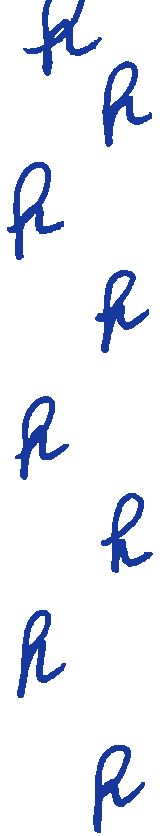 h
h
h
h
h
h
h
h